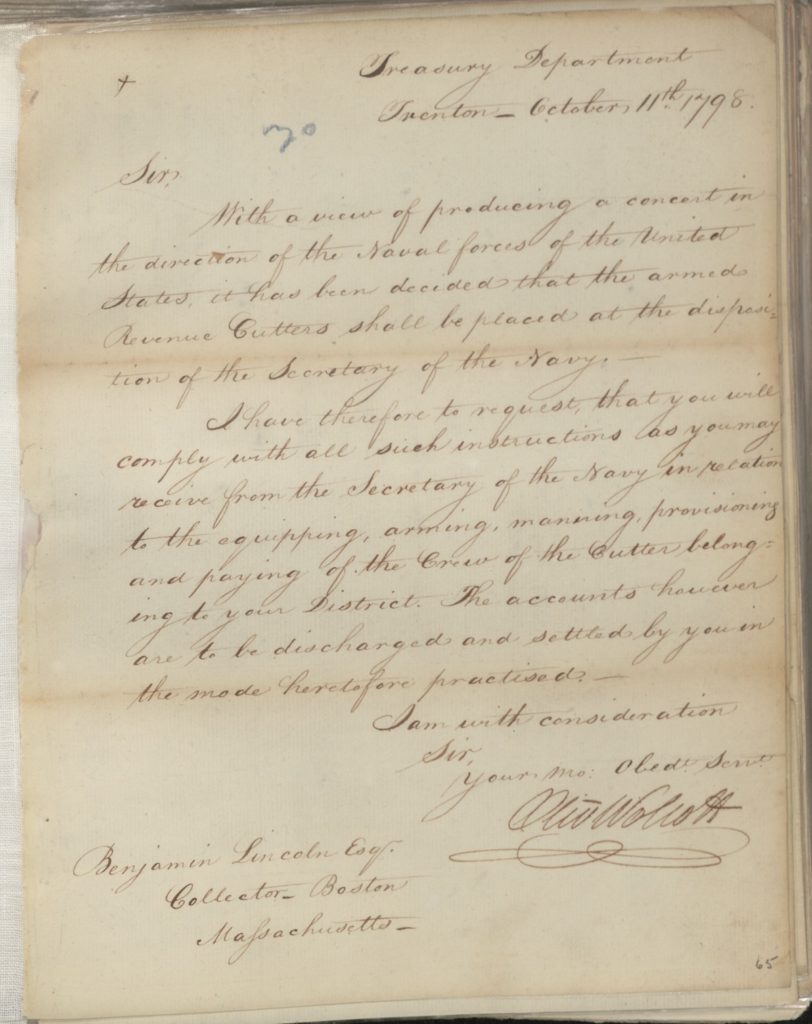 +
Treasury Department
Trenton – October 11th. 1798.
Sir,
With a view of producing a concert in
the direction of the Naval forces of the United
States, it has been decided that the armed
Revenue Cutters shall be placed at the disposi=
tion of the Secretary of the Navy. —
I have therefore to request, that you will
comply with all such instructions as you may
receive from the Secretary of the Navy in relation
to the equipping, arming, manning, provisioning
and paying of the Crew of the Cutter belong=
ing to your District. The accounts however
are to be discharged and settled by you in
the mode heretofore practised. —
I am with consideration
Sir,
Your mo: Obedt. Servt.
Olivr Wolcott
Benjamin Lincoln Esqr.
Collector – Boston
Massachusetts –
65